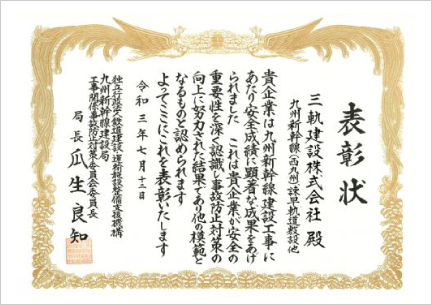 表彰状
三軌建設株式会社 殿
九州新幹線(西九州)諫早軌道敷設他
貴企業は九州新幹線建設工事に
あたり安全成績に顕著な成果をあげ
られました これは貴企業が安全の
重要性を深く認識し事故防止対策の
向上に努力された結果であり他の模範と
なるものと認められます
よってここにこれを表彰いたします
令和三年七月十二日
独立行政法人鉄道建設・運輸施設整備支援機構
九州新幹線建設局
工事関係事故防止対策委員会委員長
局長 瓜生良知